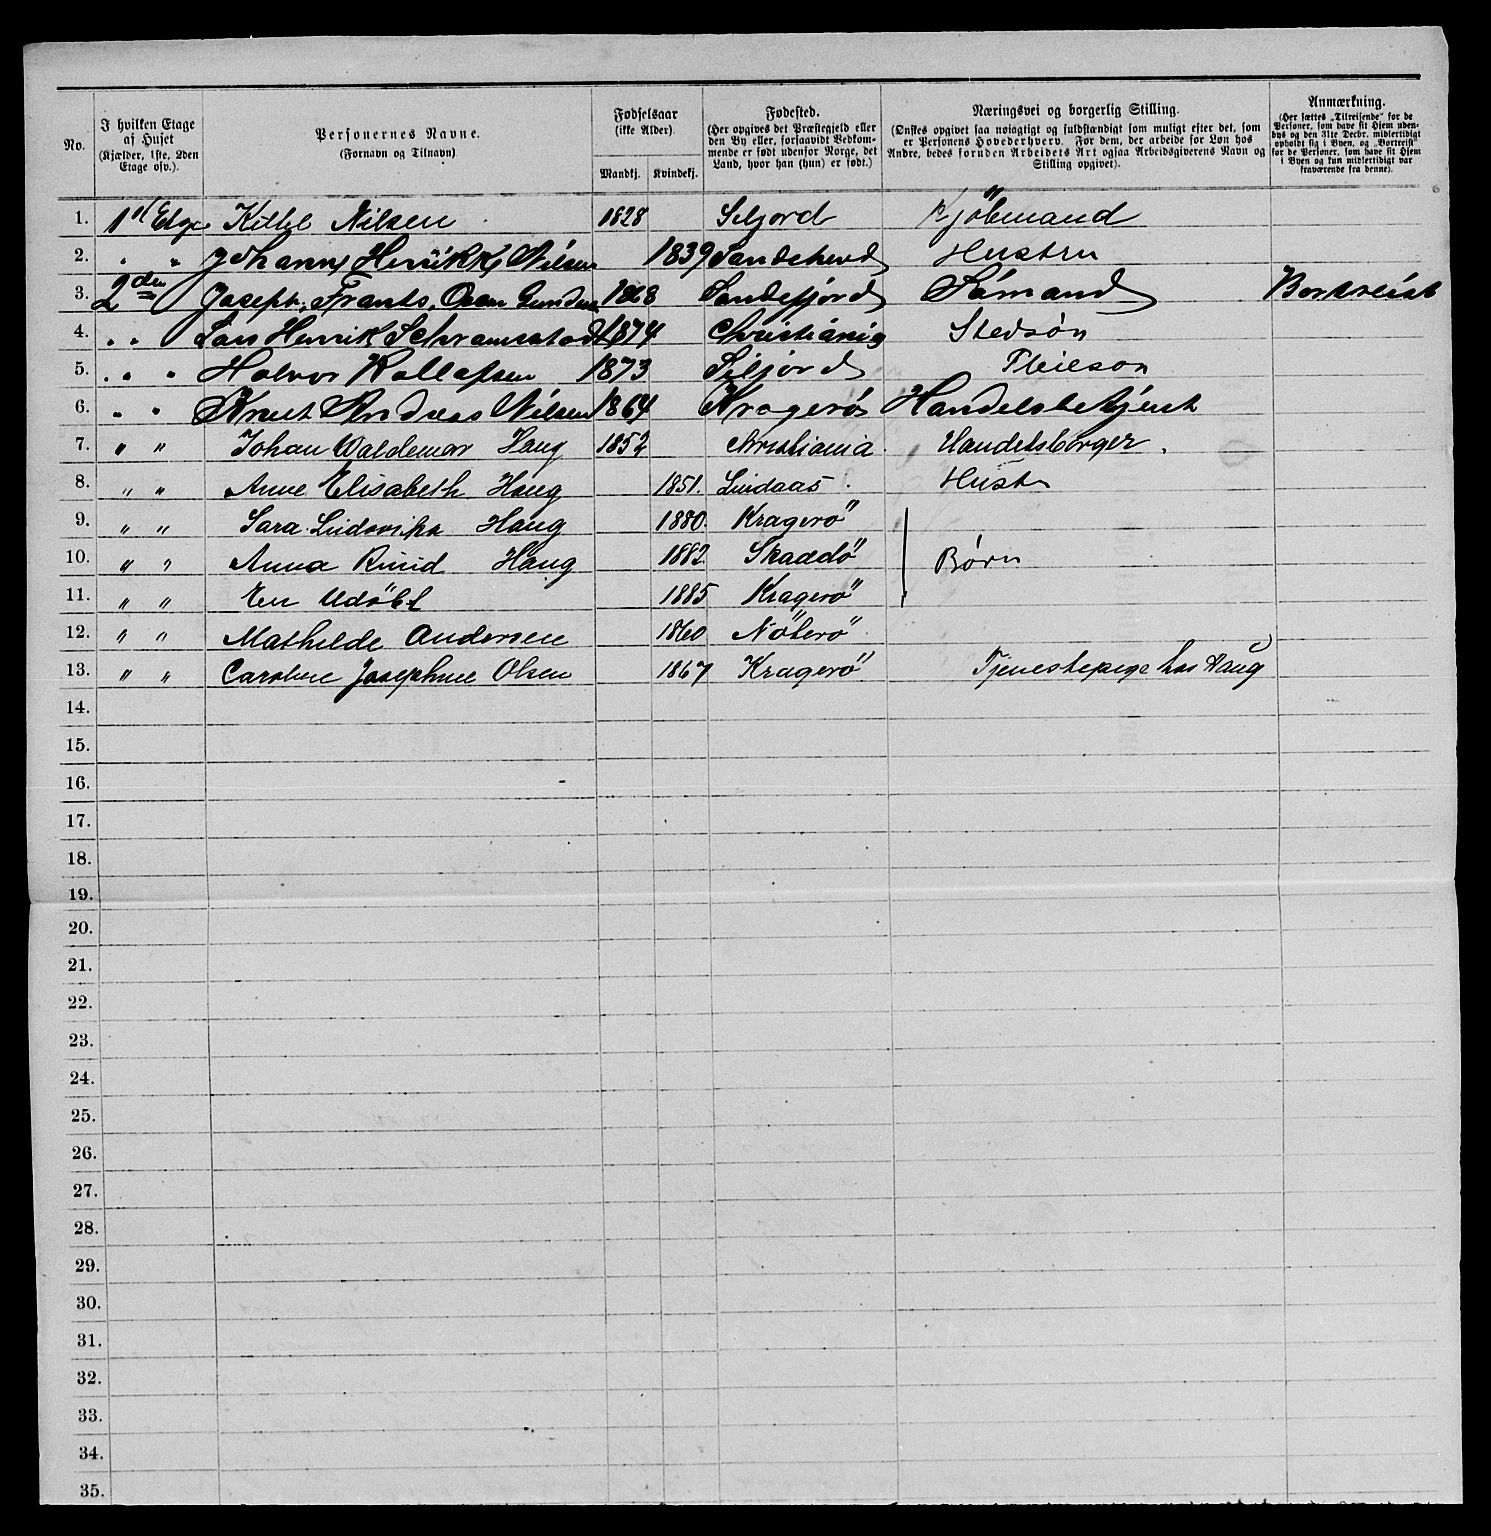 No.
I hvilken Etage af Huset (Kjælder, 1ste, 2den Etage osv.).
Personernes Navne. (Fornavn og Tilnavn)
Fødselsaar (ikke Alder). Mandkj. Kvindekj.
Fødested. (Her opgives det Præstegjeld eller den By eller, forsaavidt Vedkommende er født udenfor Norge, det Land, hvor han (hun) er født.)
Næringsvei og borgerlig Stilling. (Ønskes opgivet saa nøiagtigt og fuldstændigt som muligt efter det, som er Personens Hovederhverv. For dem, der arbeide for Løn hos Andre, bedes foruden Arbeidets Art ogsaa Arbeidsgiverens Navn og Stilling opgivet).
Anmærkning. (Her sættes „Tilreisende" for de Personer, som have sit Hjem udenbys og den 31te Decbr. midlertidigt opholdt sig i Byen, og „Bortreist" for de Personer, som have sit Hjem i Byen og kun midlertidigt var fraværende fra denne).
1. Kittel Nilsen 1828 Seljord Kjöbmand
2. " " Nilsen 1839 Hustru
3. 2den Joseph Frants Oern 1868 Sandefjord Sömand Bortreist
4. " " Lars Henrik Schramstad 1874 Christiania Stedsøn
5. " " " Halvor Rollefsen 1873 Siljord Pleieson
6. " " Knut Andreas Nilsen 1864 Kragerö Handelsbetjent
7. " " Johan Waldemar Haug 1852 Christiania Handelsborger.
8. " " Anne Elisabeth Haug 1851. Lindaas Hustr
9. " " Sara Ludovika Haug 1880. Kragerö
10. " " Anna Haug 1882 Skaadö Børn
11. " " En Udöbt 1885 Kragerö
12. " " Mathilde Andersen 1860 Nöterö
13. " " Caroline Josephine Olsen 1867 Kragerö Tjenestepige hos Haug
14.
15.
16.
17.
18.
19.
20.
21.
22.
23.
24.
25.
26.
27.
28.
29.
30.
31.
32.
33.
34.
35.